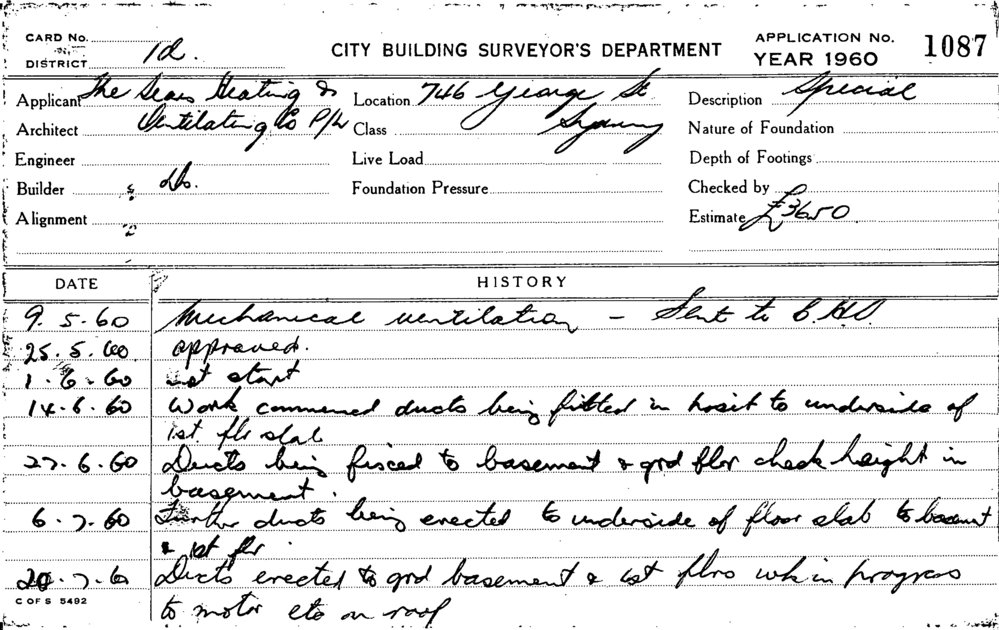 CARD No.
DISTRICT 1d.
CITY BUILDING SURVEYOR'S DEPARTMENT
APPLICATION No. 1087
YEAR 1960
Applicant The Sears Heating &
Architect Ventilating Co P/L
Engineer
Builder do.
Alignment
Location 746 George St
Class Sydney
Live Load
Foundation Pressure
Description Special
Nature of Foundation
Depth of Footings
Checked by
Estimate £3650.
DATE HISTORY
9.5.60 Mechanical ventilation – Sent to C.H.O.
25.5.60 approved.
1.6.60 not start
14.6.60 Work commenced ducts being fitted in to underside of
1st flr slab
27.6.60 Ducts being fixed to basement & grd flor check height in
basement.
6.7.60 Further ducts being erected to underside of floor slab to basemt
& 1st flr.
20.7.60 Ducts erected to grd basement & 1st flrs wk in progress
to motor etc on roof
C OF S 5492